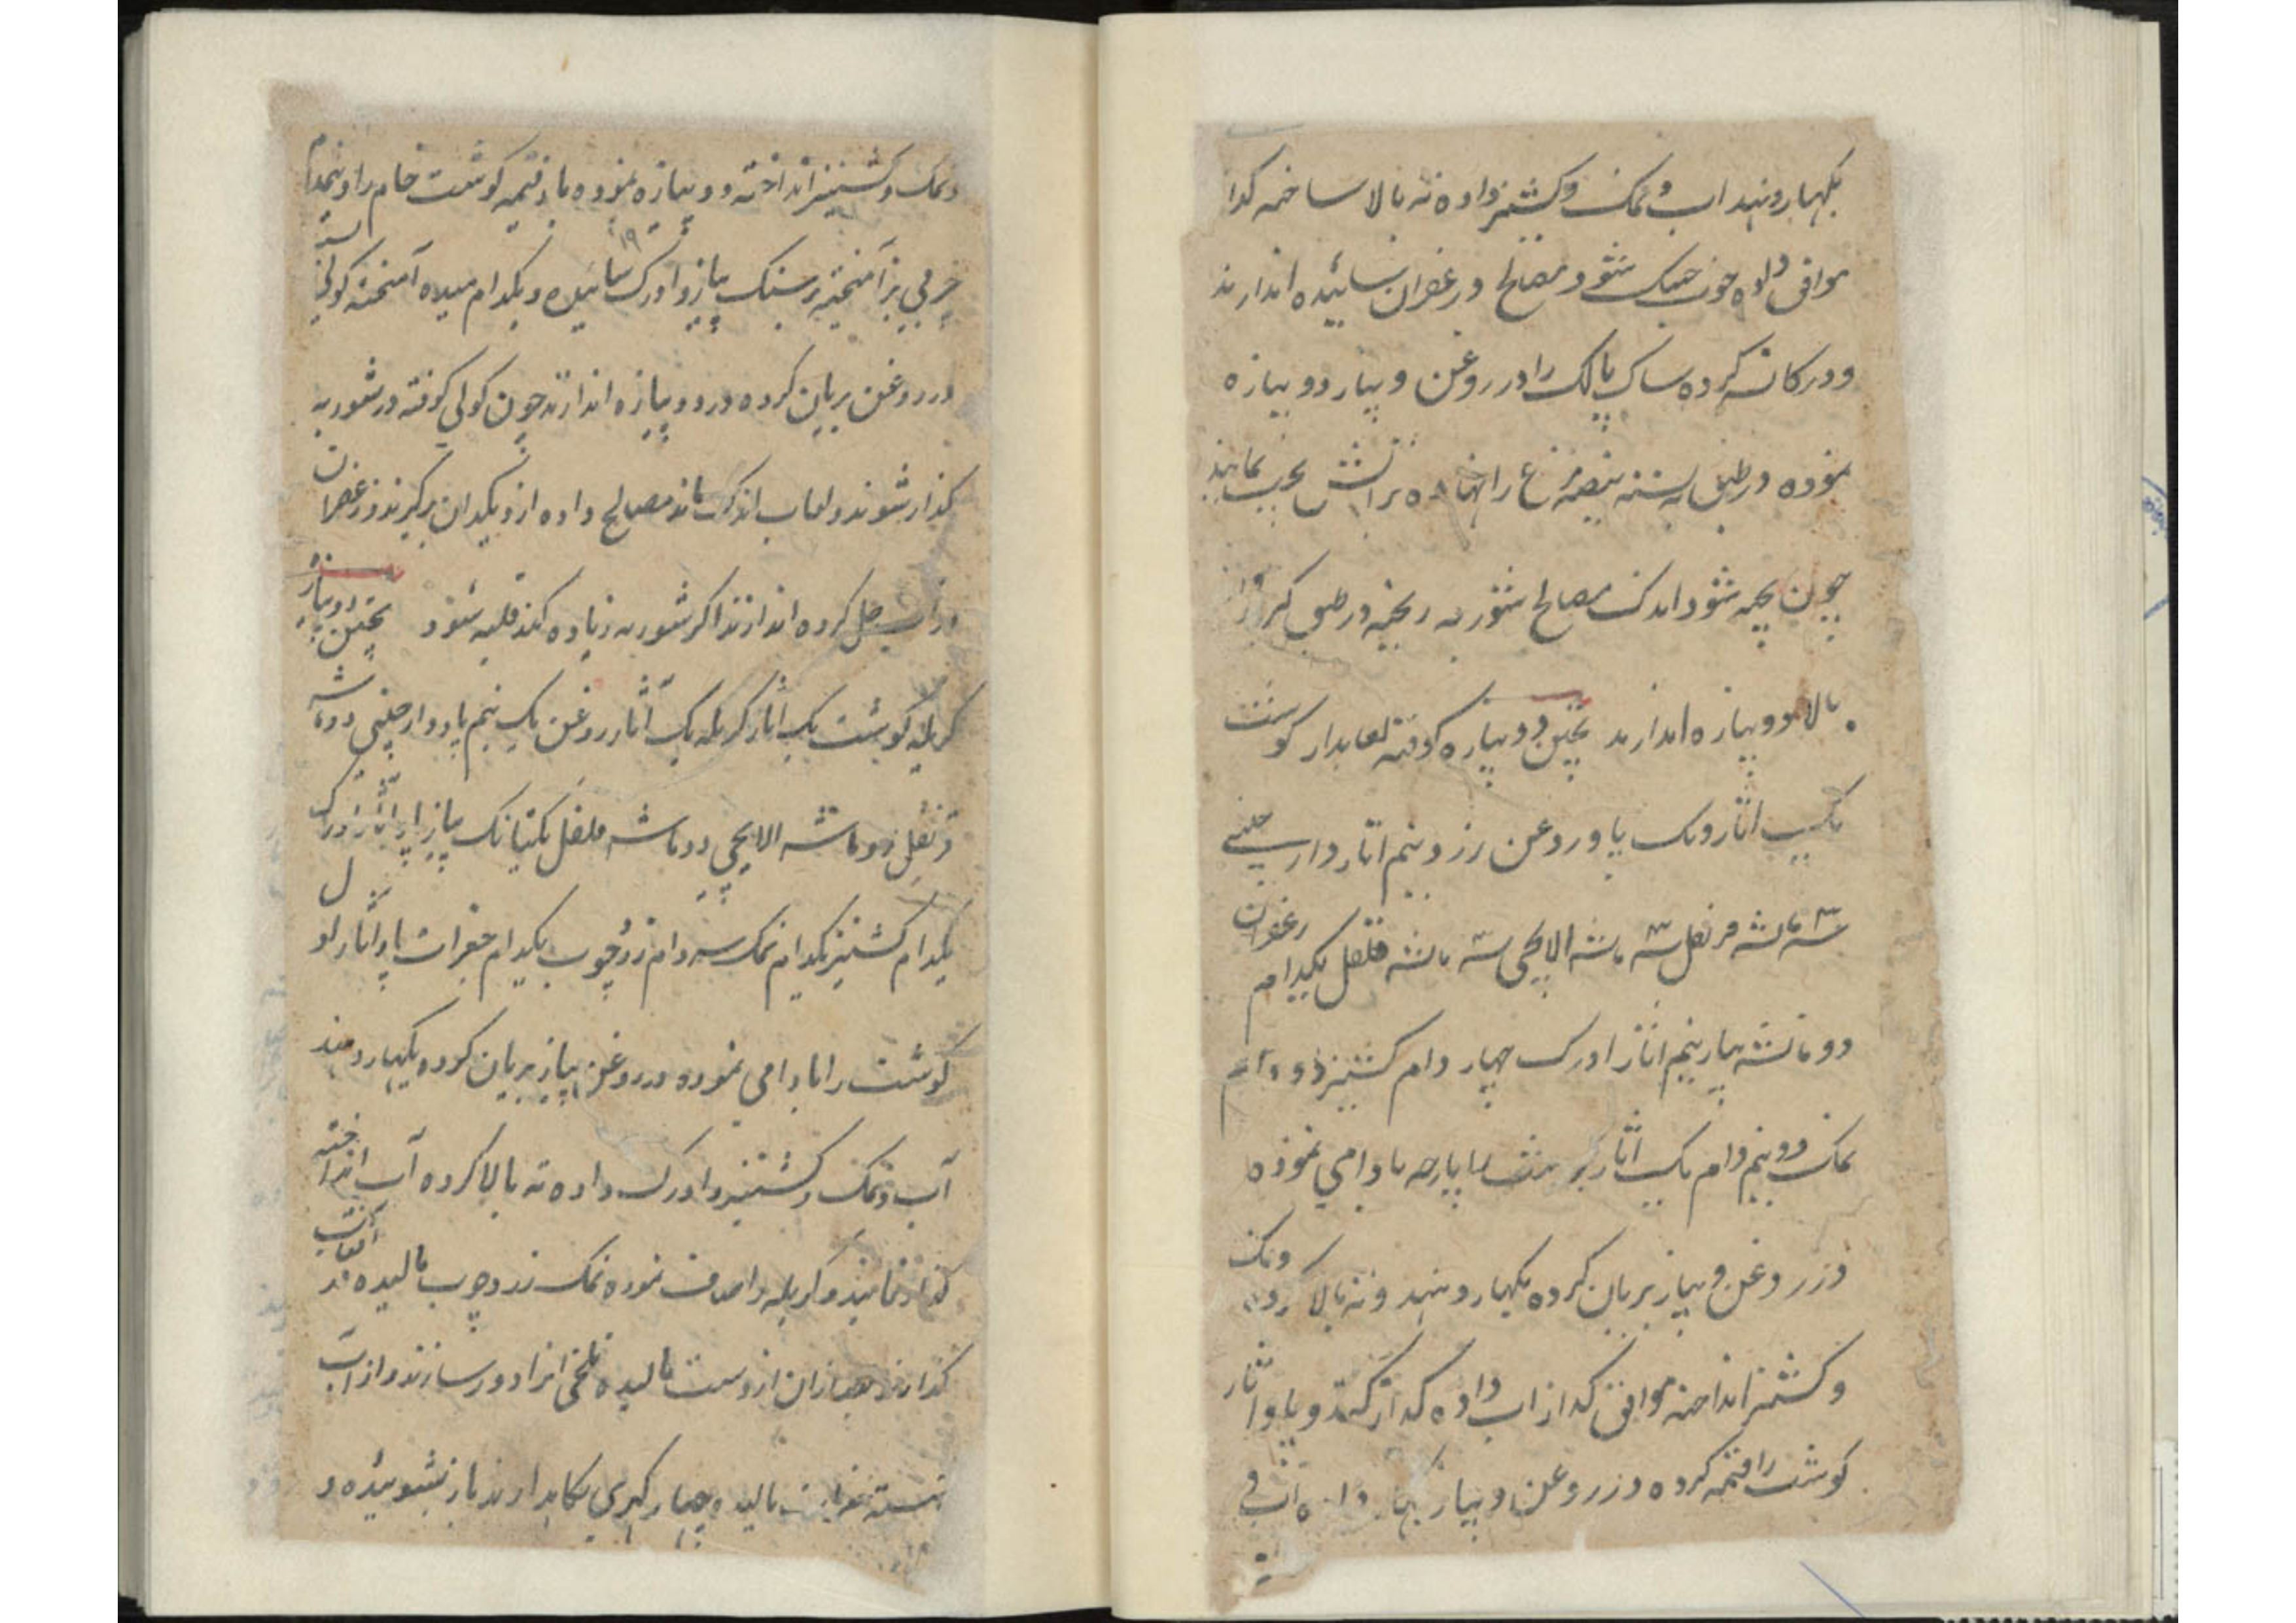 بگهار دهند اب و نمک و کشنیز داده ته بالا ساخته کدا
موافق داده چون خشک شود مصالح و زعفران سائیده اندازند
و در کاسه کرده ساک پالک را در روغن و پیاز دوپیازه
نموده در طبق بیضه مرغ را نهاده بر آتش
چون پخته شود اندک مصالح شوربه ریخته در طبق
بالا دوپیازه اندازند پختن دوپیازه کوفته لعابدار کوشت
یک اثار و یک پاو روغن زرد نیم اثار دارچینی
سه ماشه قرنفل سه ماشه الایچی سه ماشه فلفل یکدام زعفران
دو ماشه پیاز نیم اثار ادرک چهار دام کشنیز دو دام
نمک دو نیم دام یک اثار کوشت را پارچه بادامی نموده
در روغن و پیاز بریان کرده بگهار دهند و ته بالا کرده و نمک
و کشنیز انداخته موافق کداز اب داده کداز کنند و پاو اثار
کوشت را قیمه کرده در روغن و پیاز بگهار داده آب
و نمک و کشنیز انداخته دوپیازه نموده با قیمه کوشت خام را و نیمدام
چربی بز آمیخته بر سنک پیاز و ادرک سائیده و یکدام میده آمیخته کولی بسته
در روغن بریان کرده در دوپیازه اندازند چون کولی کوفته در شوربه
کداز شوند و لعاب اندک ماند مصالح داده از دیکدان برکیرند و زعفران
در آب حل کرده اندازند اکر شوربه زیاده کند قلیه شود پختن دوپیازه
کریله کوشت یک اثار کریله یک آثار روغن یک نیم پاو دارچینی دو ماشه
قرنفل دو ماشه الایچی دو ماشه فلفل یکتانک پیاز پاو آثار ادرک
یکدام کشنیز یکدام نمک سه دام زردچوب یکدام جغرات پاو آثار اول
کوشت را بادامی نموده در روغن پیاز بریان کرده بگهار دهند
آب و نمک و کشنیز و ادرک داده ته بالا کرده آب انداخته
کداز نمایند و کریله را صاف نموده نمک زردچوب مالیده در آفتاب
کدارند بعد ازان از دست مالیده تلخی انرا دور سازند و از آب
شسته جغرات مالیده چهار کهری نکاهدارند باز بشویند و